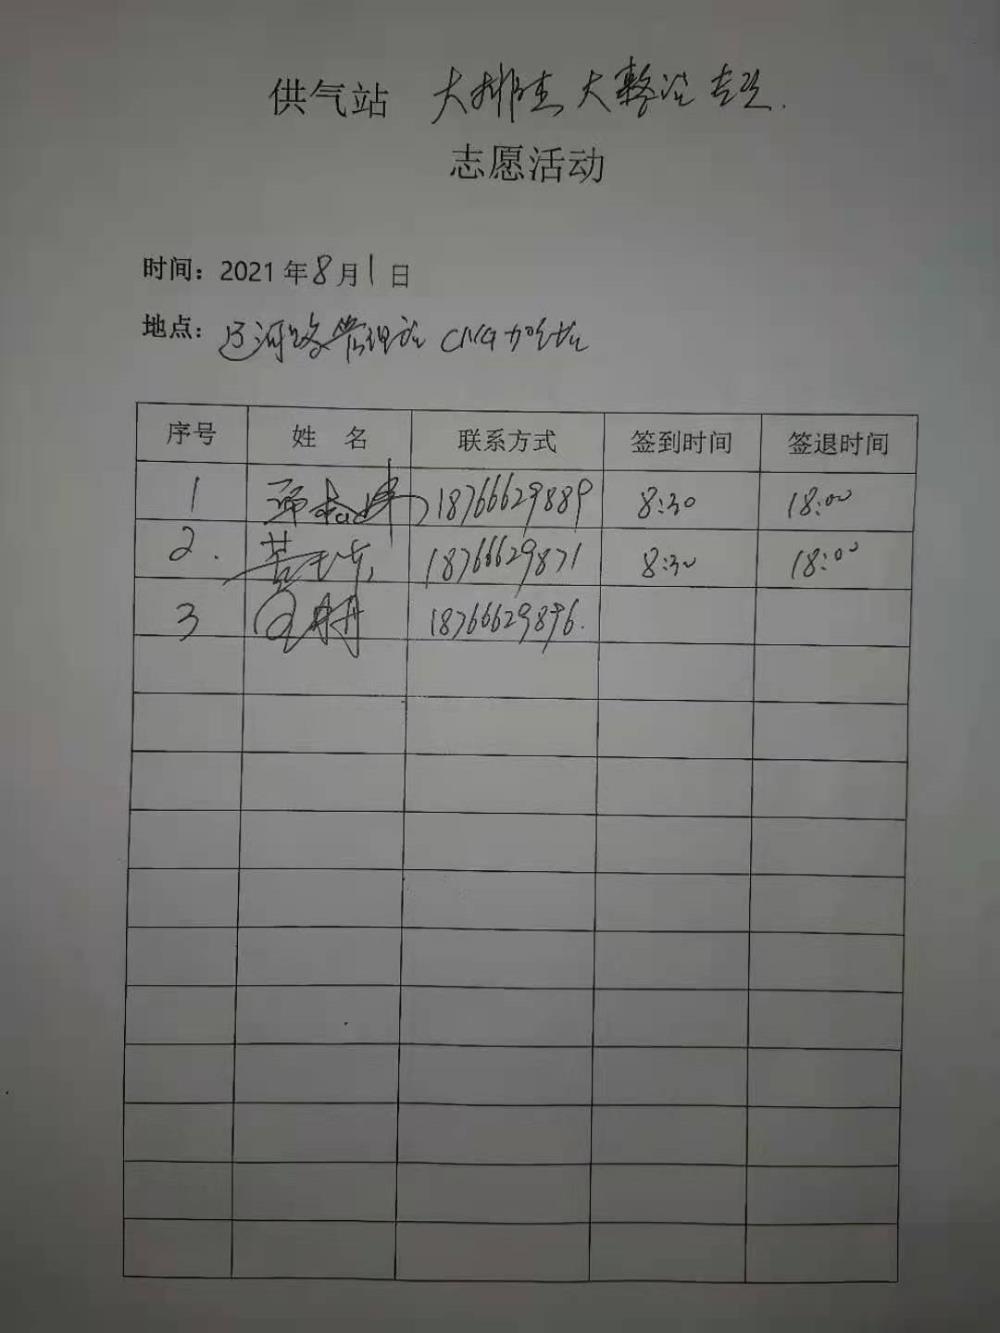 供气站 大排查大整治专项
志愿活动
时间：2021年8月1日
地点：辽河路管理站CNG加气站
序号 姓 名 联系方式 签到时间 签退时间
1 18766629889 8:30 18:00
2. 18766629871 8:30 18:00
3 18766629896.